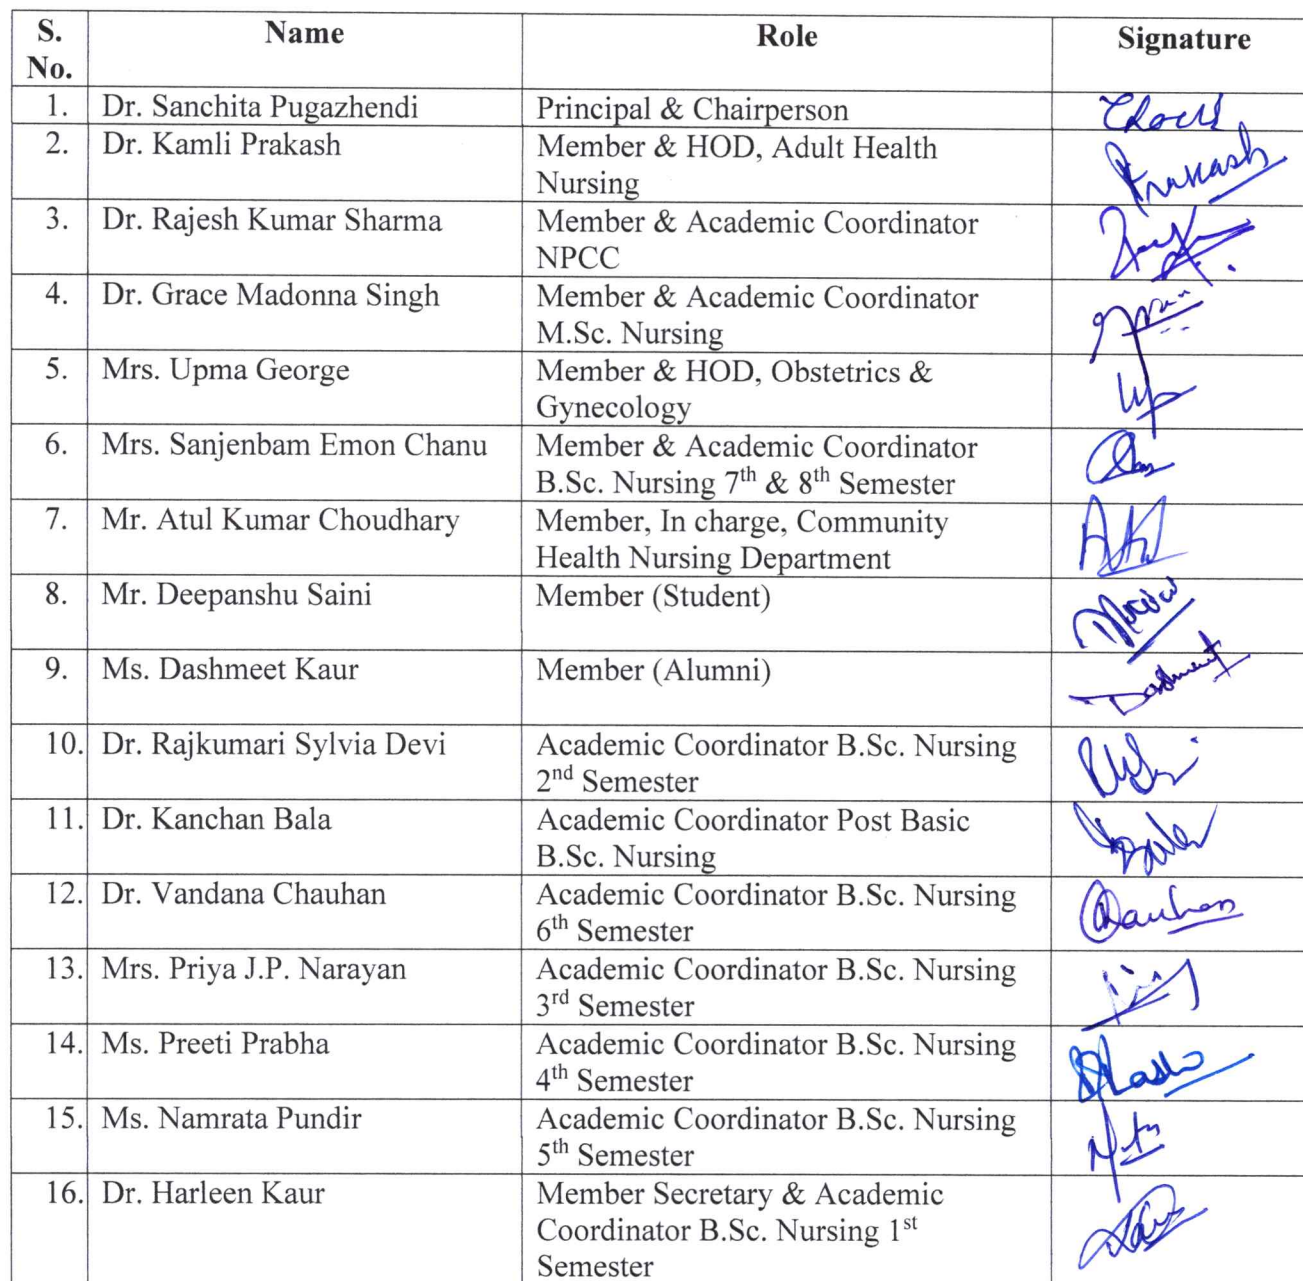 S. No. Name Role Signature
1. Dr. Sanchita Pugazhendi Principal & Chairperson
2. Dr. Kamli Prakash Member & HOD, Adult Health
Nursing Prakash
3. Dr. Rajesh Kumar Sharma Member & Academic Coordinator
NPCC
4. Dr. Grace Madonna Singh Member & Academic Coordinator
M.Sc. Nursing
5. Mrs. Upma George Member & HOD, Obstetrics &
Gynecology
6. Mrs. Sanjenbam Emon Chanu Member & Academic Coordinator
B.Sc. Nursing 7th & 8th Semester
7. Mr. Atul Kumar Choudhary Member, In charge, Community
Health Nursing Department
8. Mr. Deepanshu Saini Member (Student)
9. Ms. Dashmeet Kaur Member (Alumni) Dashmeet
10. Dr. Rajkumari Sylvia Devi Academic Coordinator B.Sc. Nursing
2nd Semester
11. Dr. Kanchan Bala Academic Coordinator Post Basic
B.Sc. Nursing
12. Dr. Vandana Chauhan Academic Coordinator B.Sc. Nursing
6th Semester Chauhan
13. Mrs. Priya J.P. Narayan Academic Coordinator B.Sc. Nursing
3rd Semester
14. Ms. Preeti Prabha Academic Coordinator B.Sc. Nursing
4th Semester
15. Ms. Namrata Pundir Academic Coordinator B.Sc. Nursing
5th Semester
16. Dr. Harleen Kaur Member Secretary & Academic
Coordinator B.Sc. Nursing 1st
Semester